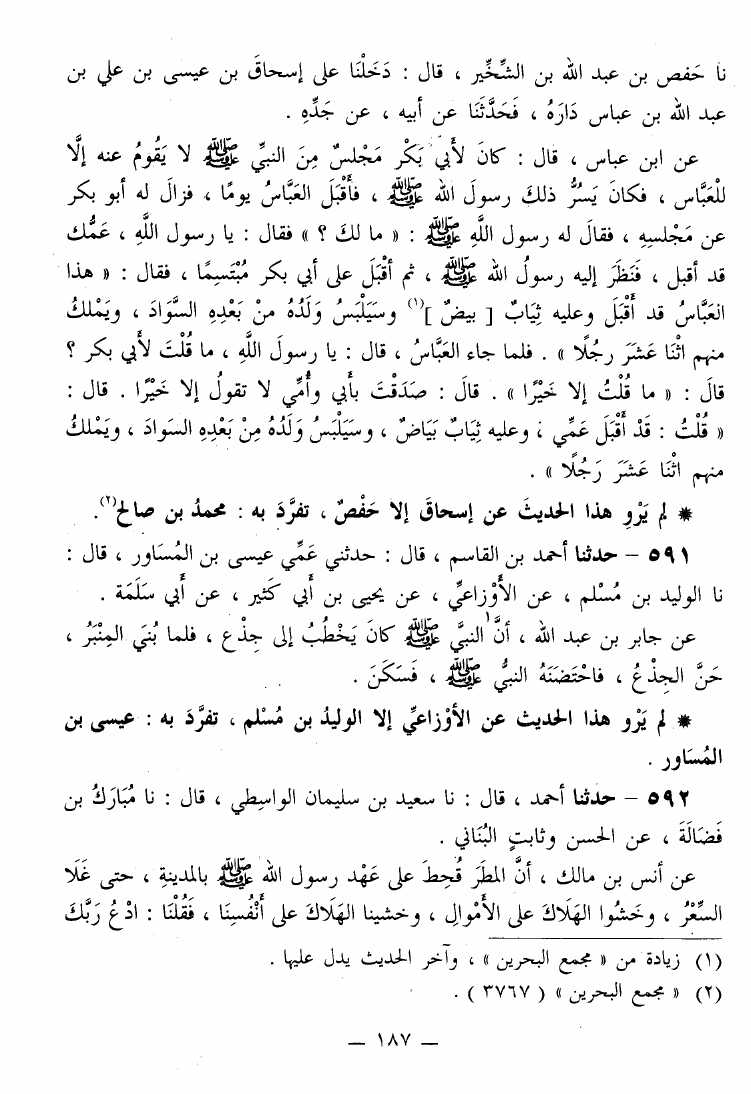 نا حَفص بن عبد الله بن الشِّخِّير ، قال : دَخَلْنَا على إسحاقَ بن عيسى بن علي بن
عبد الله بن عباس دَارَهُ ، فَحَدَّثَنَا عن أبيه ، عن جَدِّهِ .
عن ابن عباس ، قال : كانَ لأَبي بَكْر مَجْلسٌ مِنَ النبيِّ ﷺ لا يَقُومُ عنه إلَّا
للْعَبَّاس ، فكانَ يَسُرُّ ذلكَ رسولَ الله ﷺ ، فأَقْبَلَ العَبَّاسُ يومًا ، فزالَ له أبو بكر
عن مَجْلسِهِ ، فقالَ له رسول اللَّهِ ﷺ : « ما لكَ ؟ » فقال : يا رسول اللَّهِ ، عَمُّك
قد أقبل ، فَنَظَرَ إليه رسولُ الله ﷺ ، ثم أَقْبَلَ على أبي بكر مُبْتَسِمًا ، فقال : « هذا
العَبَّاسُ قد أَقْبَلَ وعليه ثِيَابٌ [ بيضٌ ](١) وسَيَلْبَسُ وَلَدُهُ منْ بَعْدِهِ السَّوَادَ ، ويَمْلكُ
منهم اثْنَا عَشَرَ رجُلًا » . فلما جاء العَبَّاسُ ، قال : يا رسولَ اللَّهِ ، ما قُلْتَ لأَبي بكر ؟
قالَ : « ما قُلْتُ إلا خَيْرًا » . قالَ : صَدَقْتَ بأَبي وأُمِّي لا تقولُ إلا خَيْرًا . قال :
« قُلْتُ : قَدْ أَقْبَلَ عَمِّي ، وعليه ثِيَابٌ بَيَاضٌ ، وسَيَلْبَسُ وَلَدُهُ مِنْ بَعْدِهِ السوَادَ ، ويَمْلكُ
منهم اثْنَا عَشَرَ رَجُلًا » .
* لم يَرْوِ هذا الحديثَ عن إسحاقَ إلا حَفْصٌ ، تفرَّدَ به : محمدُ بن صالح(٢).
٥٩١ – حدثنا أحمد بن القاسم ، قال : حدثني عَمِّي عيسى بن المُسَاور ، قال :
نا الوليد بن مُسْلم ، عن الأَوْزاعيِّ ، عن يحيى بن أَبي كَثير ، عن أَبي سَلَمَة .
عن جابر بن عبد الله ، أنَّ النبيَّ ﷺ كانَ يَخْطُبُ إلى جِذْع ، فلما بُنيَ المِنْبَرُ ،
حَنَّ الجِذْعُ ، فاحْتَضَنَهُ النبيُّ ﷺ ، فَسَكَنَ .
* لم يَرْو هذا الحديث عن الأَوْزاعيِّ إلا الوليدُ بن مُسْلم ، تفرَّدَ به : عيسى بن
المُسَاور .
٥٩٢ – حدثنا أحمد ، قال : نا سعيد بن سليمان الواسِطي ، قال : نا مُبَارَكُ بن
فَضَالَةَ ، عن الحسن وثابتٍ البُنَاني .
عن أنس بن مالك ، أنَّ المطَرَ قُحِطَ على عَهْد رسول الله ﷺ بالمدينةِ ، حتى غَلَا
السِّعْرُ ، وخَشُوا الهَلَاكَ على الأَمْوالِ ، وخشينا الهَلَاكَ على أَنْفُسِنَا ، فَقُلْنَا : ادْعُ رَبَّكَ
(١) زيادة من « مجمع البحرين » ، وآخر الحديث يدل عليها .
(٢) « مجمع البحرين » ( ٣٧٦٧ ) .
– ١٨٧ –